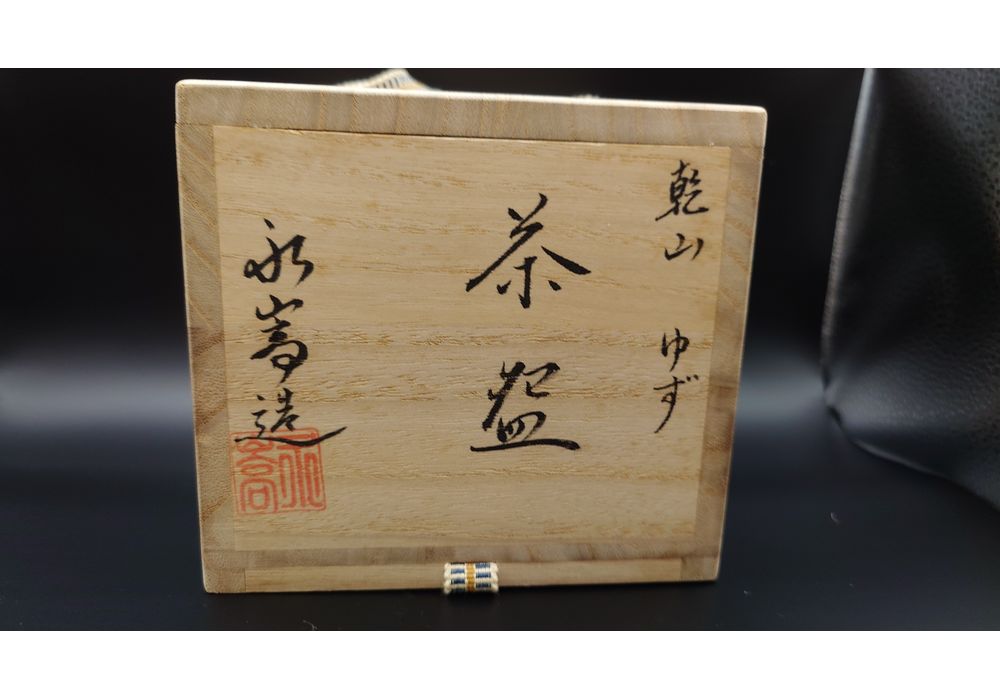 乾山 ゆず
茶盌
永嵩造